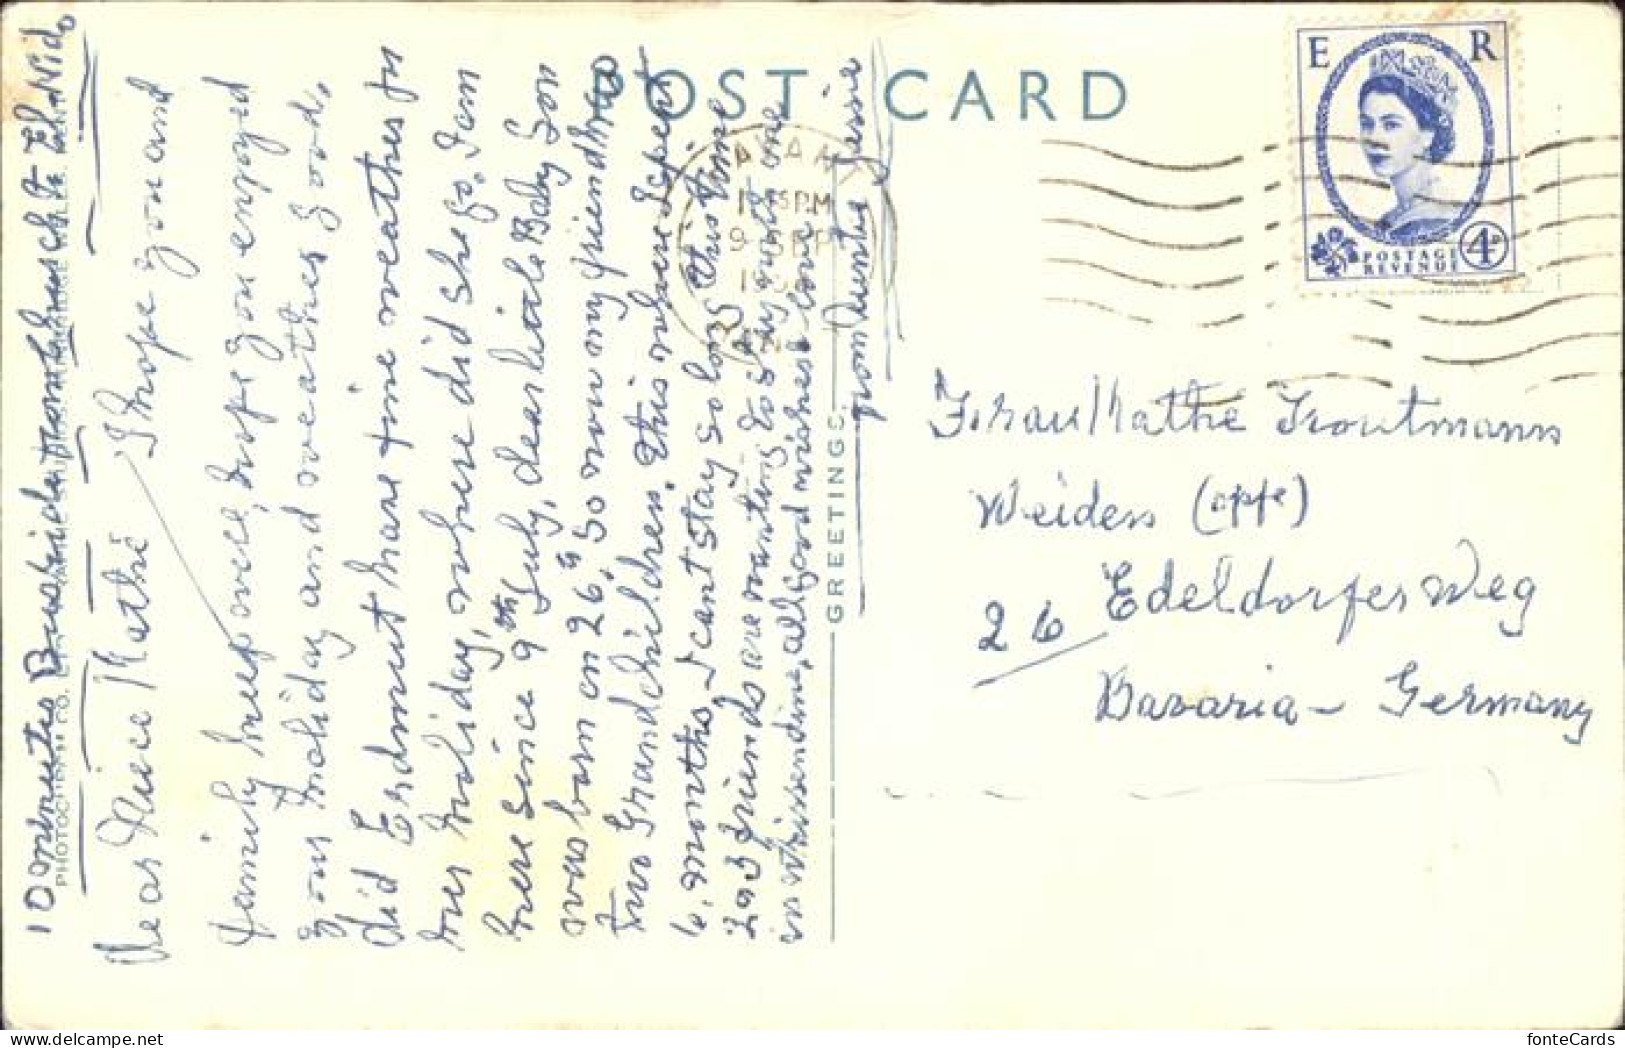 POST CARD
E R
POSTAGE
REVENUE
4D
PM
9 SEP
GREETINGS
PHOTOCHROM CO.
10 minutes
Dear Niece Kathe I hope you and
family keep well, hope you enjoyed
your holiday and weather good,
did Erdmut have fine weather for
her holiday, where did she go. I am
here since 9th July, dear little Baby Son
was born on 26th, so now my friend has
Two Grandchildren. this where I spent
6. months, I cant stay so long this time
2 or 3 friends are wanting to say
all good wishes love
from Auntie Jessie
Frau Kathe Troutmann
Weiden (opf)
26 Edeldorfer Weg
Bavaria - Germany
fonteCards